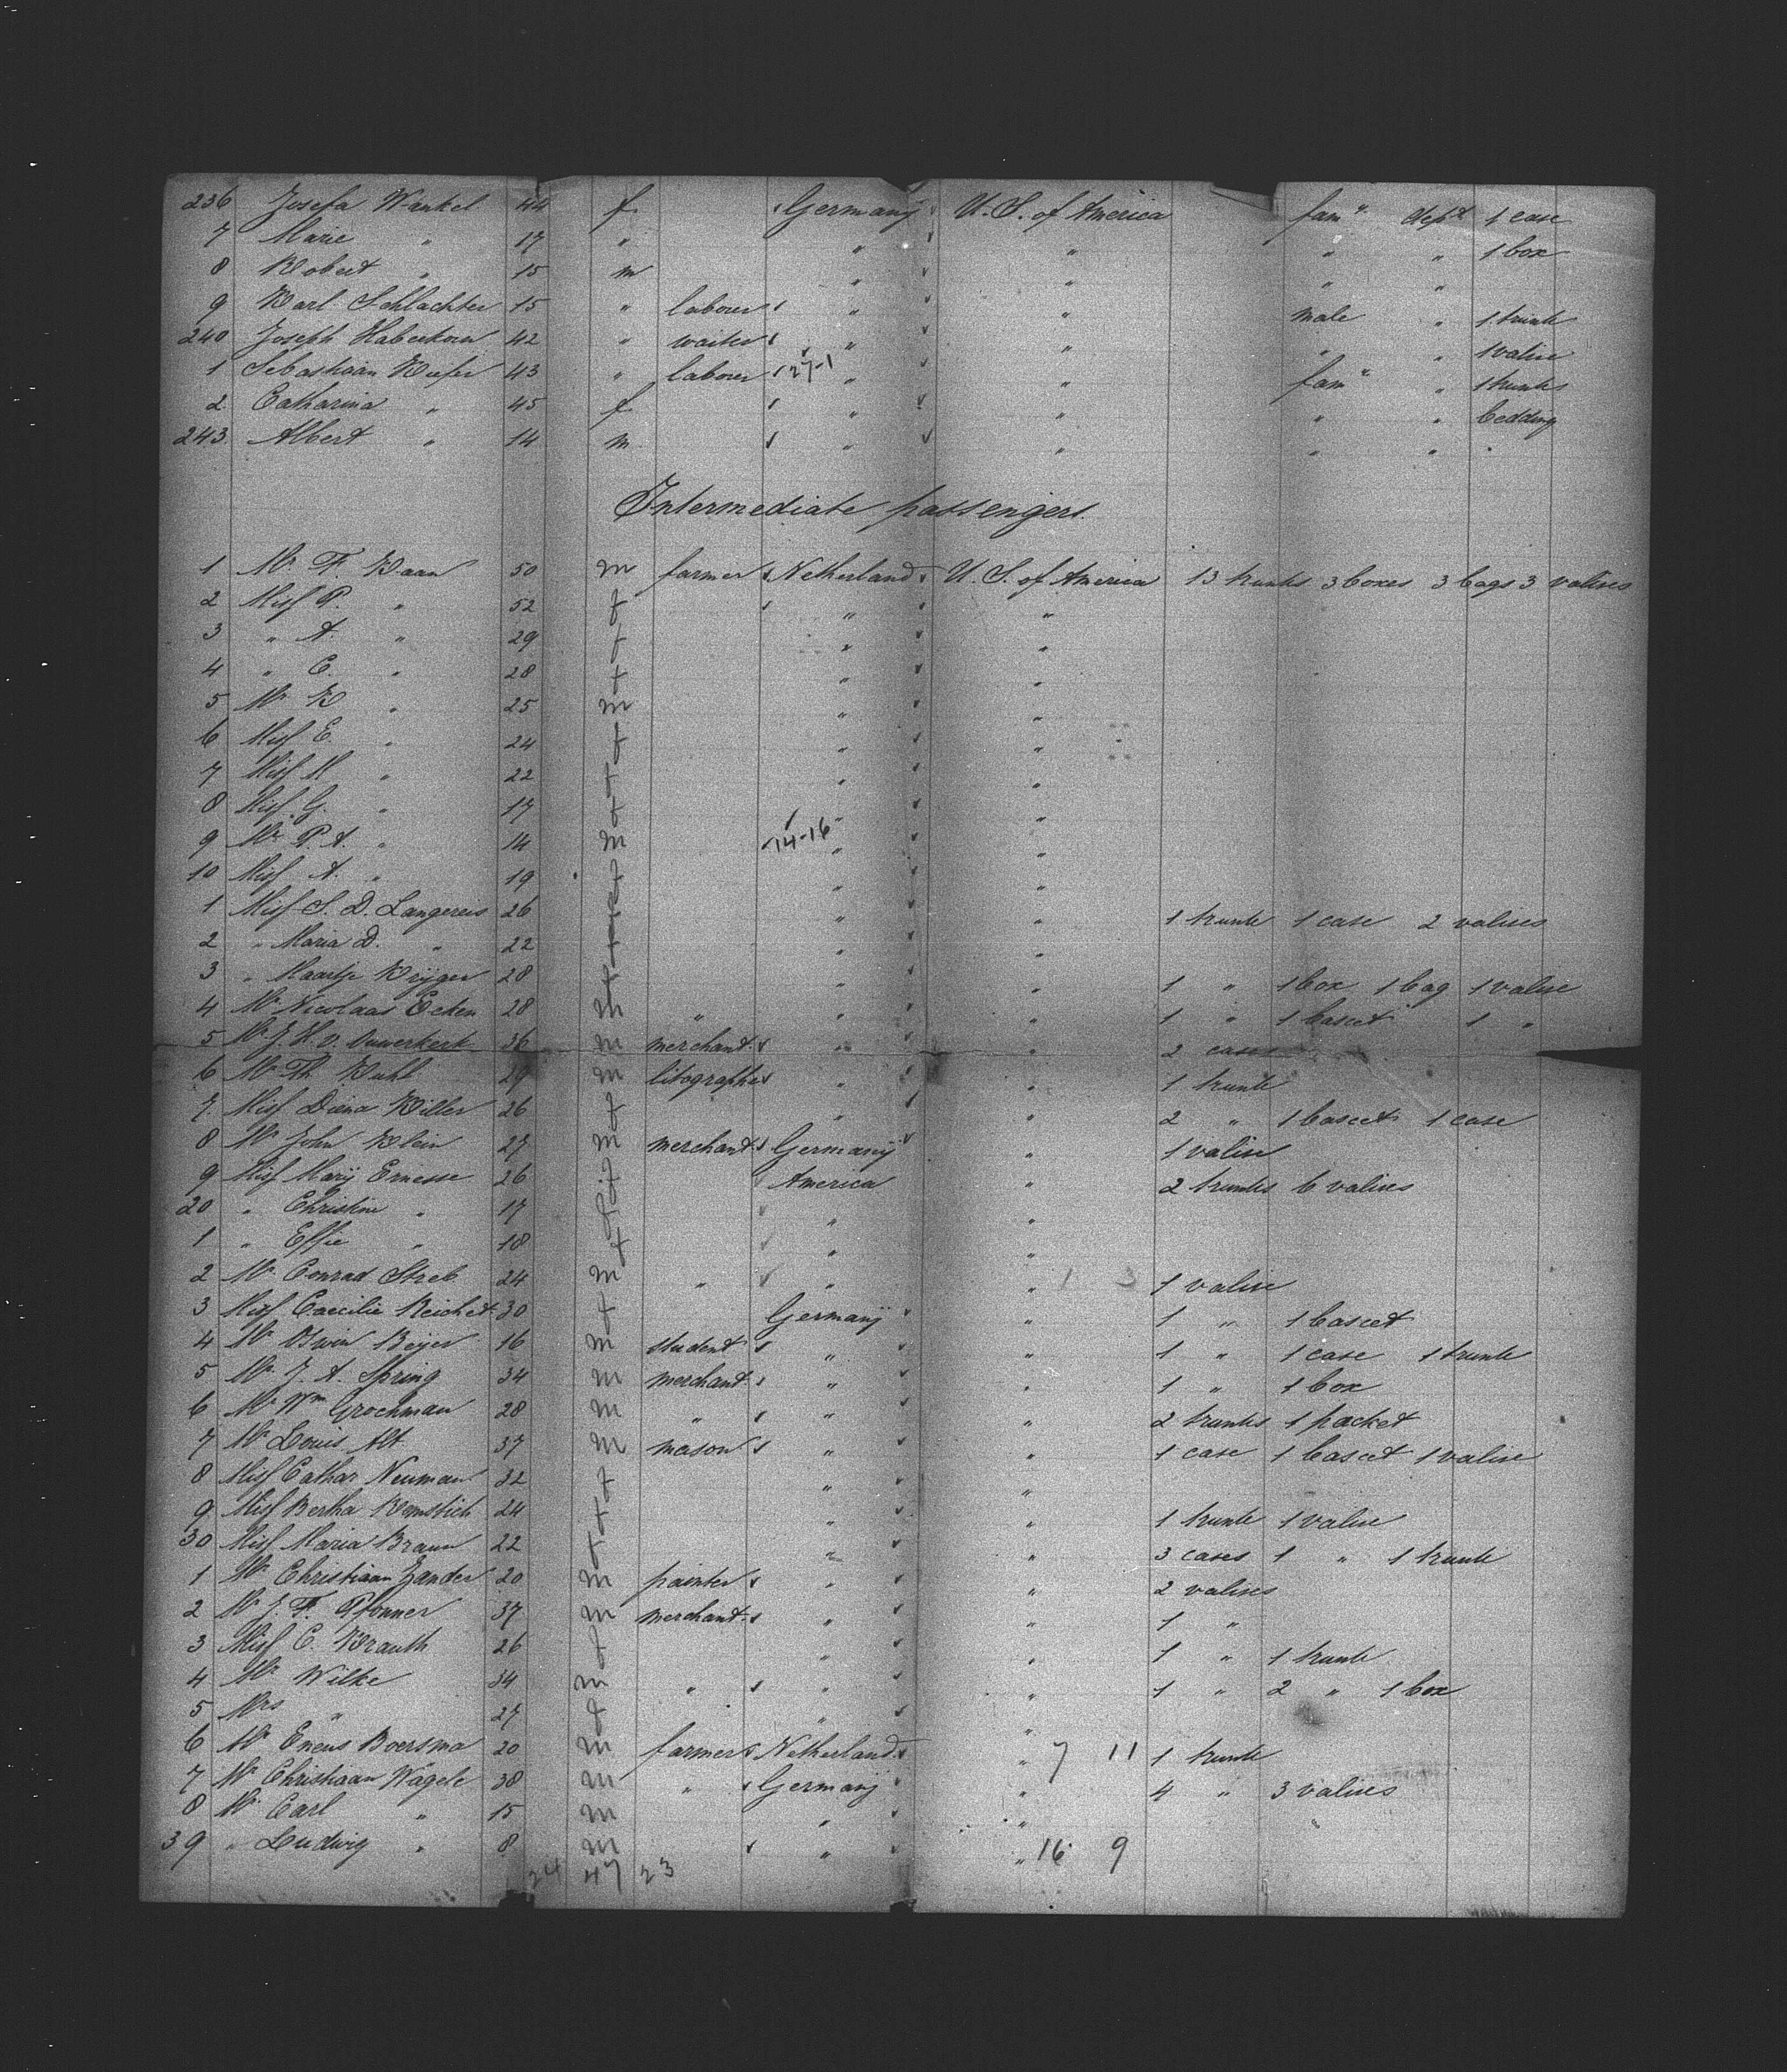 236 Josefa Wankel 44 f. Germanÿ U.S. of America fam" dept 1 case
7 Marie " 17 " " " " " 1 box
8 Robert " 15 m " " " "
9 Karl Schlachter 15 " laborer " " male " 1 trunk
240 Joseph Haberkorn 42 " waiter " " " " 1 valise
1 Sebastiaan Kiefer 43 " laborer 27-1 " " fam" " 1 trunk
2 Catharina " 45 f. " " " " bedding
243 Albert " 14 m " " " " "
Intermediate passengers.
1 Mr. F. Kaan 50 m farmer Netherland U.S. of America 13 trunks 3 boxes 3 bags 3 valises
2 Miss P. " 52 f " "
3 " A. " 29 f " "
4 " C. " 28 f " "
5 Mr. K " 25 m " "
6 Miss E. " 24 f " "
7 Miss M " 22 f " "
8 Miss G. " 17 f " "
9 Mr. P. A. " 14 m 14-16 " "
10 Miss A. " 19 f " "
1 Miss S. D. Langereis 26 f " " 1 trunk 1 case 2 valises
2 " Maria D. " 22 f " "
3 " Maartje Krÿger 28 f " " 1 " 1 box 1 bag 1 valise
4 Mr Nicolaas Ecken 28 m " " " 1 " 1 bascet 1 "
5 Mr. J. H. v. Ouwerkerk 36 m merchant " " 2 cases
6 Mr Th. Kuhl 29 m litographer " " 1 trunk
7. Miss Diena Killer 26 f " " 2 " 1 bascet 1 case
8 Mr John Klein 27 m merchant Germanÿ " 1 valise
9 Miss Marÿ Ernesse 26 f America " 2 trunks 6 valises
20 " Christine " 17 f " "
1 " Effie " 18 f " "
2 Mr. Conrad Streb 24 m " " " 1 3 1 valise
3 Miss Caecilie Reichet 30 f Germanÿ " 1 " 1 bascet
4 Mr Oswin Beÿer 16 m student " " 1 " 1 case 1 trunk
5 Mr. J. A. Spring 34 m merchant " " 1 " 1 box
6 Mr Wm Grochman 28 m " " " 2 trunks 1 packet
7 Mr Louis Alt 37 m mason " " 1 case 1 bascet 1 valise
8 Miss Cathar Neuman 32 f " "
9. Miss Bertha 24 f " " 1 trunk 1 valise
30 Miss Maria Braun 22 f " " 3 cases 1 " 1 trunk
1 Mr Christiaan Zander 20 m painter " " 2 valises
2 Mr J. F. Pfonner 37 m merchant " " 1 "
3 Miss C. Krauth 26 f " " 1 " 1 trunk
4 Mr. Wilke 34 m " " " 1 " 2 " 1 box
5 Mrs " 27 f " "
6 Mr Eneus Boersma 20 m farmer Netherland " 7 11 1 trunk
7 Mr Christiaan Wagele 38 m " Germanÿ " 4 " 3 valises
8 Mr. Carl " 15 m " "
39 " Ludwig " 8 m " " 16 9
24 47 23